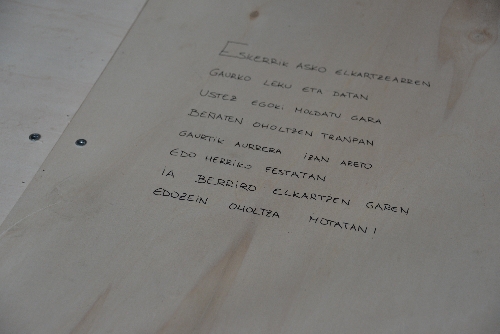 ESKERRIK ASKO ELKARTZEARREN
GAURKO LEKU ETA DATAN
USTEZ EGOKI MOLDATU GARA
BEÑATEN OHOLTZEN TRANPAN
GAURTIK AURRERA IZAN ABETO
EDO HERRIKO FESTATAN
IA BERRIRO ELKARTZEN GAREN
EDOZEIN OHOLTZA MOTATAN!